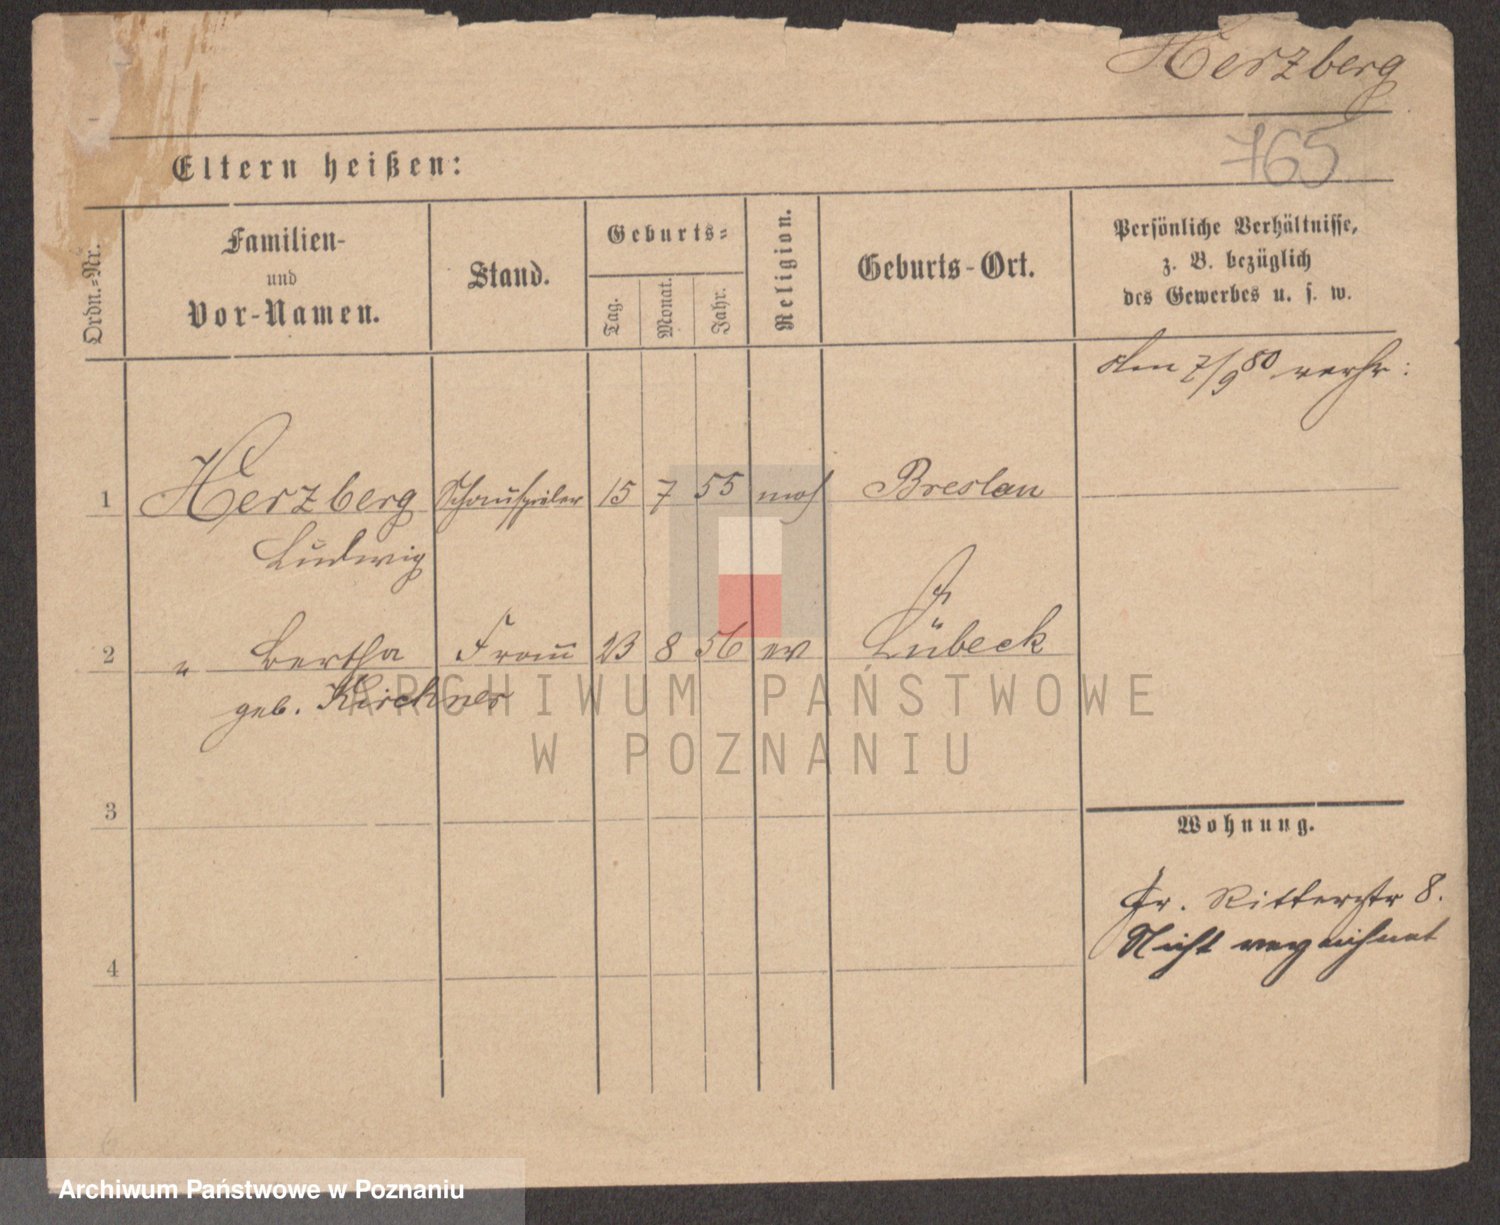 Herzberg
765
Eltern heißen:
Ordn.-Nr.
Familien-
und
Vor-Namen.
Stand.
Geburts-
Tag.
Monat.
Jahr.
Religion.
Geburts-Ort.
Persönliche Verhältnisse,
z. B. bezüglich
des Gewerbes u. s. w.
7/9 80
1 Herzberg Schauspieler 15 7 55 mos Breslau
Ludwig
2 " Bertha Frau 23 8 56 ev Lübeck
geb. Kirchner
3
4
Wohnung.
Gr. Ritterstr 8.
Nicht verzeichnet
ARCHIWUM PAŃSTWOWE
W POZNANIU
Archiwum Państwowe w Poznaniu